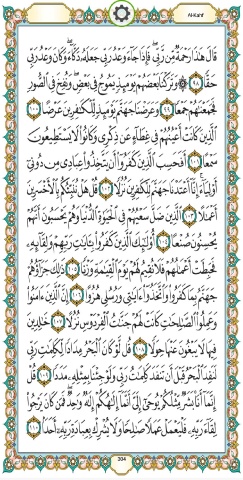 Al-Kahf
قَالَ هَٰذَا رَحْمَةٌ مِّن رَّبِّي ۖ فَإِذَا جَاءَ وَعْدُ رَبِّي جَعَلَهُ دَكَّاءَ ۖ وَكَانَ وَعْدُ رَبِّي
حَقًّا ٩٨ وَتَرَكْنَا بَعْضَهُمْ يَوْمَئِذٍ يَمُوجُ فِي بَعْضٍ ۖ وَنُفِخَ فِي الصُّورِ
فَجَمَعْنَاهُمْ جَمْعًا ٩٩ وَعَرَضْنَا جَهَنَّمَ يَوْمَئِذٍ لِّلْكَافِرِينَ عَرْضًا ١٠٠
الَّذِينَ كَانَتْ أَعْيُنُهُمْ فِي غِطَاءٍ عَن ذِكْرِي وَكَانُوا لَا يَسْتَطِيعُونَ
سَمْعًا ١٠١ أَفَحَسِبَ الَّذِينَ كَفَرُوا أَن يَتَّخِذُوا عِبَادِي مِن دُونِي
أَوْلِيَاءَ ۚ إِنَّا أَعْتَدْنَا جَهَنَّمَ لِلْكَافِرِينَ نُزُلًا ١٠٢ قُلْ هَلْ نُنَبِّئُكُم بِالْأَخْسَرِينَ
أَعْمَالًا ١٠٣ الَّذِينَ ضَلَّ سَعْيُهُمْ فِي الْحَيَاةِ الدُّنْيَا وَهُمْ يَحْسَبُونَ أَنَّهُمْ
يُحْسِنُونَ صُنْعًا ١٠٤ أُولَٰئِكَ الَّذِينَ كَفَرُوا بِآيَاتِ رَبِّهِمْ وَلِقَائِهِ
فَحَبِطَتْ أَعْمَالُهُمْ فَلَا نُقِيمُ لَهُمْ يَوْمَ الْقِيَامَةِ وَزْنًا ١٠٥ ذَٰلِكَ جَزَاؤُهُمْ
جَهَنَّمُ بِمَا كَفَرُوا وَاتَّخَذُوا آيَاتِي وَرُسُلِي هُزُوًا ١٠٦ إِنَّ الَّذِينَ آمَنُوا
وَعَمِلُوا الصَّالِحَاتِ كَانَتْ لَهُمْ جَنَّاتُ الْفِرْدَوْسِ نُزُلًا ١٠٧ خَالِدِينَ
فِيهَا لَا يَبْغُونَ عَنْهَا حِوَلًا ١٠٨ قُل لَّوْ كَانَ الْبَحْرُ مِدَادًا لِّكَلِمَاتِ رَبِّي
لَنَفِدَ الْبَحْرُ قَبْلَ أَن تَنفَدَ كَلِمَاتُ رَبِّي وَلَوْ جِئْنَا بِمِثْلِهِ مَدَدًا ١٠٩ قُلْ
إِنَّمَا أَنَا بَشَرٌ مِّثْلُكُمْ يُوحَىٰ إِلَيَّ أَنَّمَا إِلَٰهُكُمْ إِلَٰهٌ وَاحِدٌ ۖ فَمَن كَانَ يَرْجُو
لِقَاءَ رَبِّهِ فَلْيَعْمَلْ عَمَلًا صَالِحًا وَلَا يُشْرِكْ بِعِبَادَةِ رَبِّهِ أَحَدًا ١١٠
304